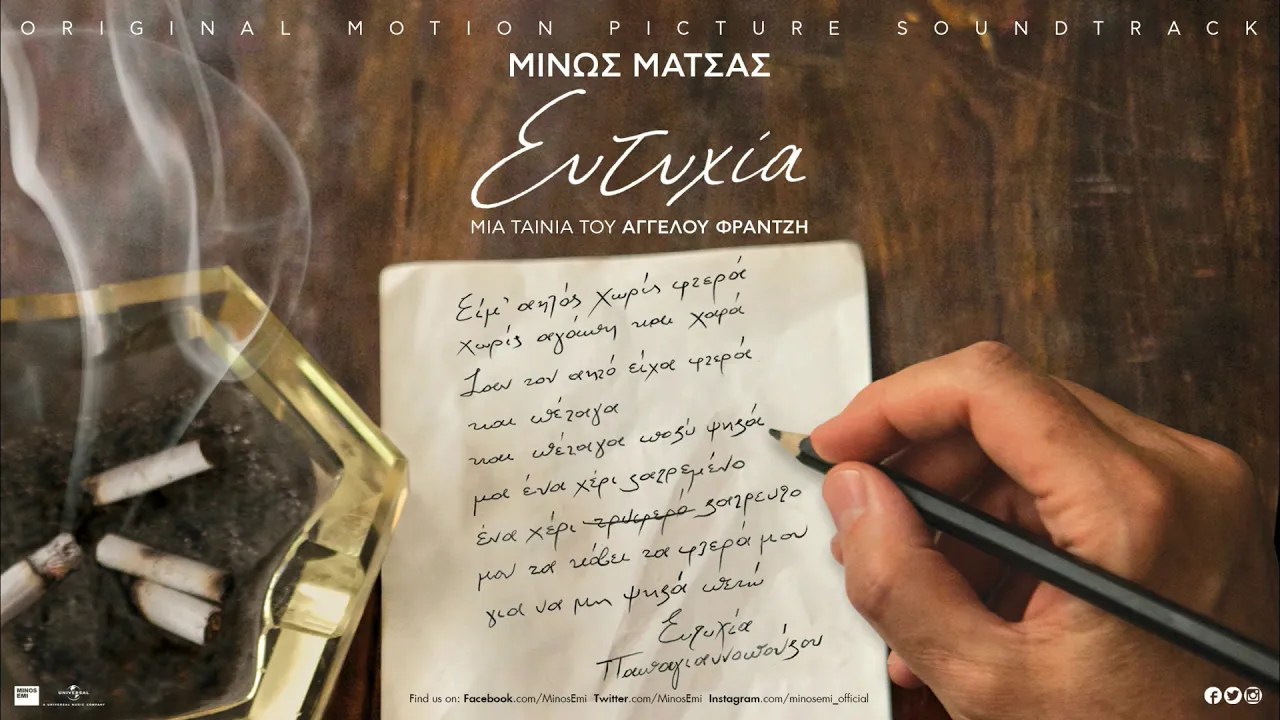 ORIGINAL MOTION PICTURE SOUNDTRACK
ΜΙΝΩΣ ΜΑΤΣΑΣ
Ευτυχία
ΜΙΑ ΤΑΙΝΙΑ ΤΟΥ ΑΓΓΕΛΟΥ ΦΡΑΝΤΖΗ
Είμ' αητός χωρίς φτερά
χωρίς αγάπη και χαρά
Σαν τον αητό είχα φτερά
και πέταγα
και πέταγα πολύ ψηλά
μα ένα χέρι λατρεμένο
ένα χέρι τρυφερό λατρευτό
μου τα κόβει τα φτερά μου
για να μη ψηλά πετώ
Ευτυχία
Παπαγιαννοπούλου
MINOS
EMI
UNIVERSAL
A UNIVERSAL MUSIC COMPANY
Find us on: Facebook.com/MinosEmi Twitter.com/MinosEmi Instagram.com/minosemi_official